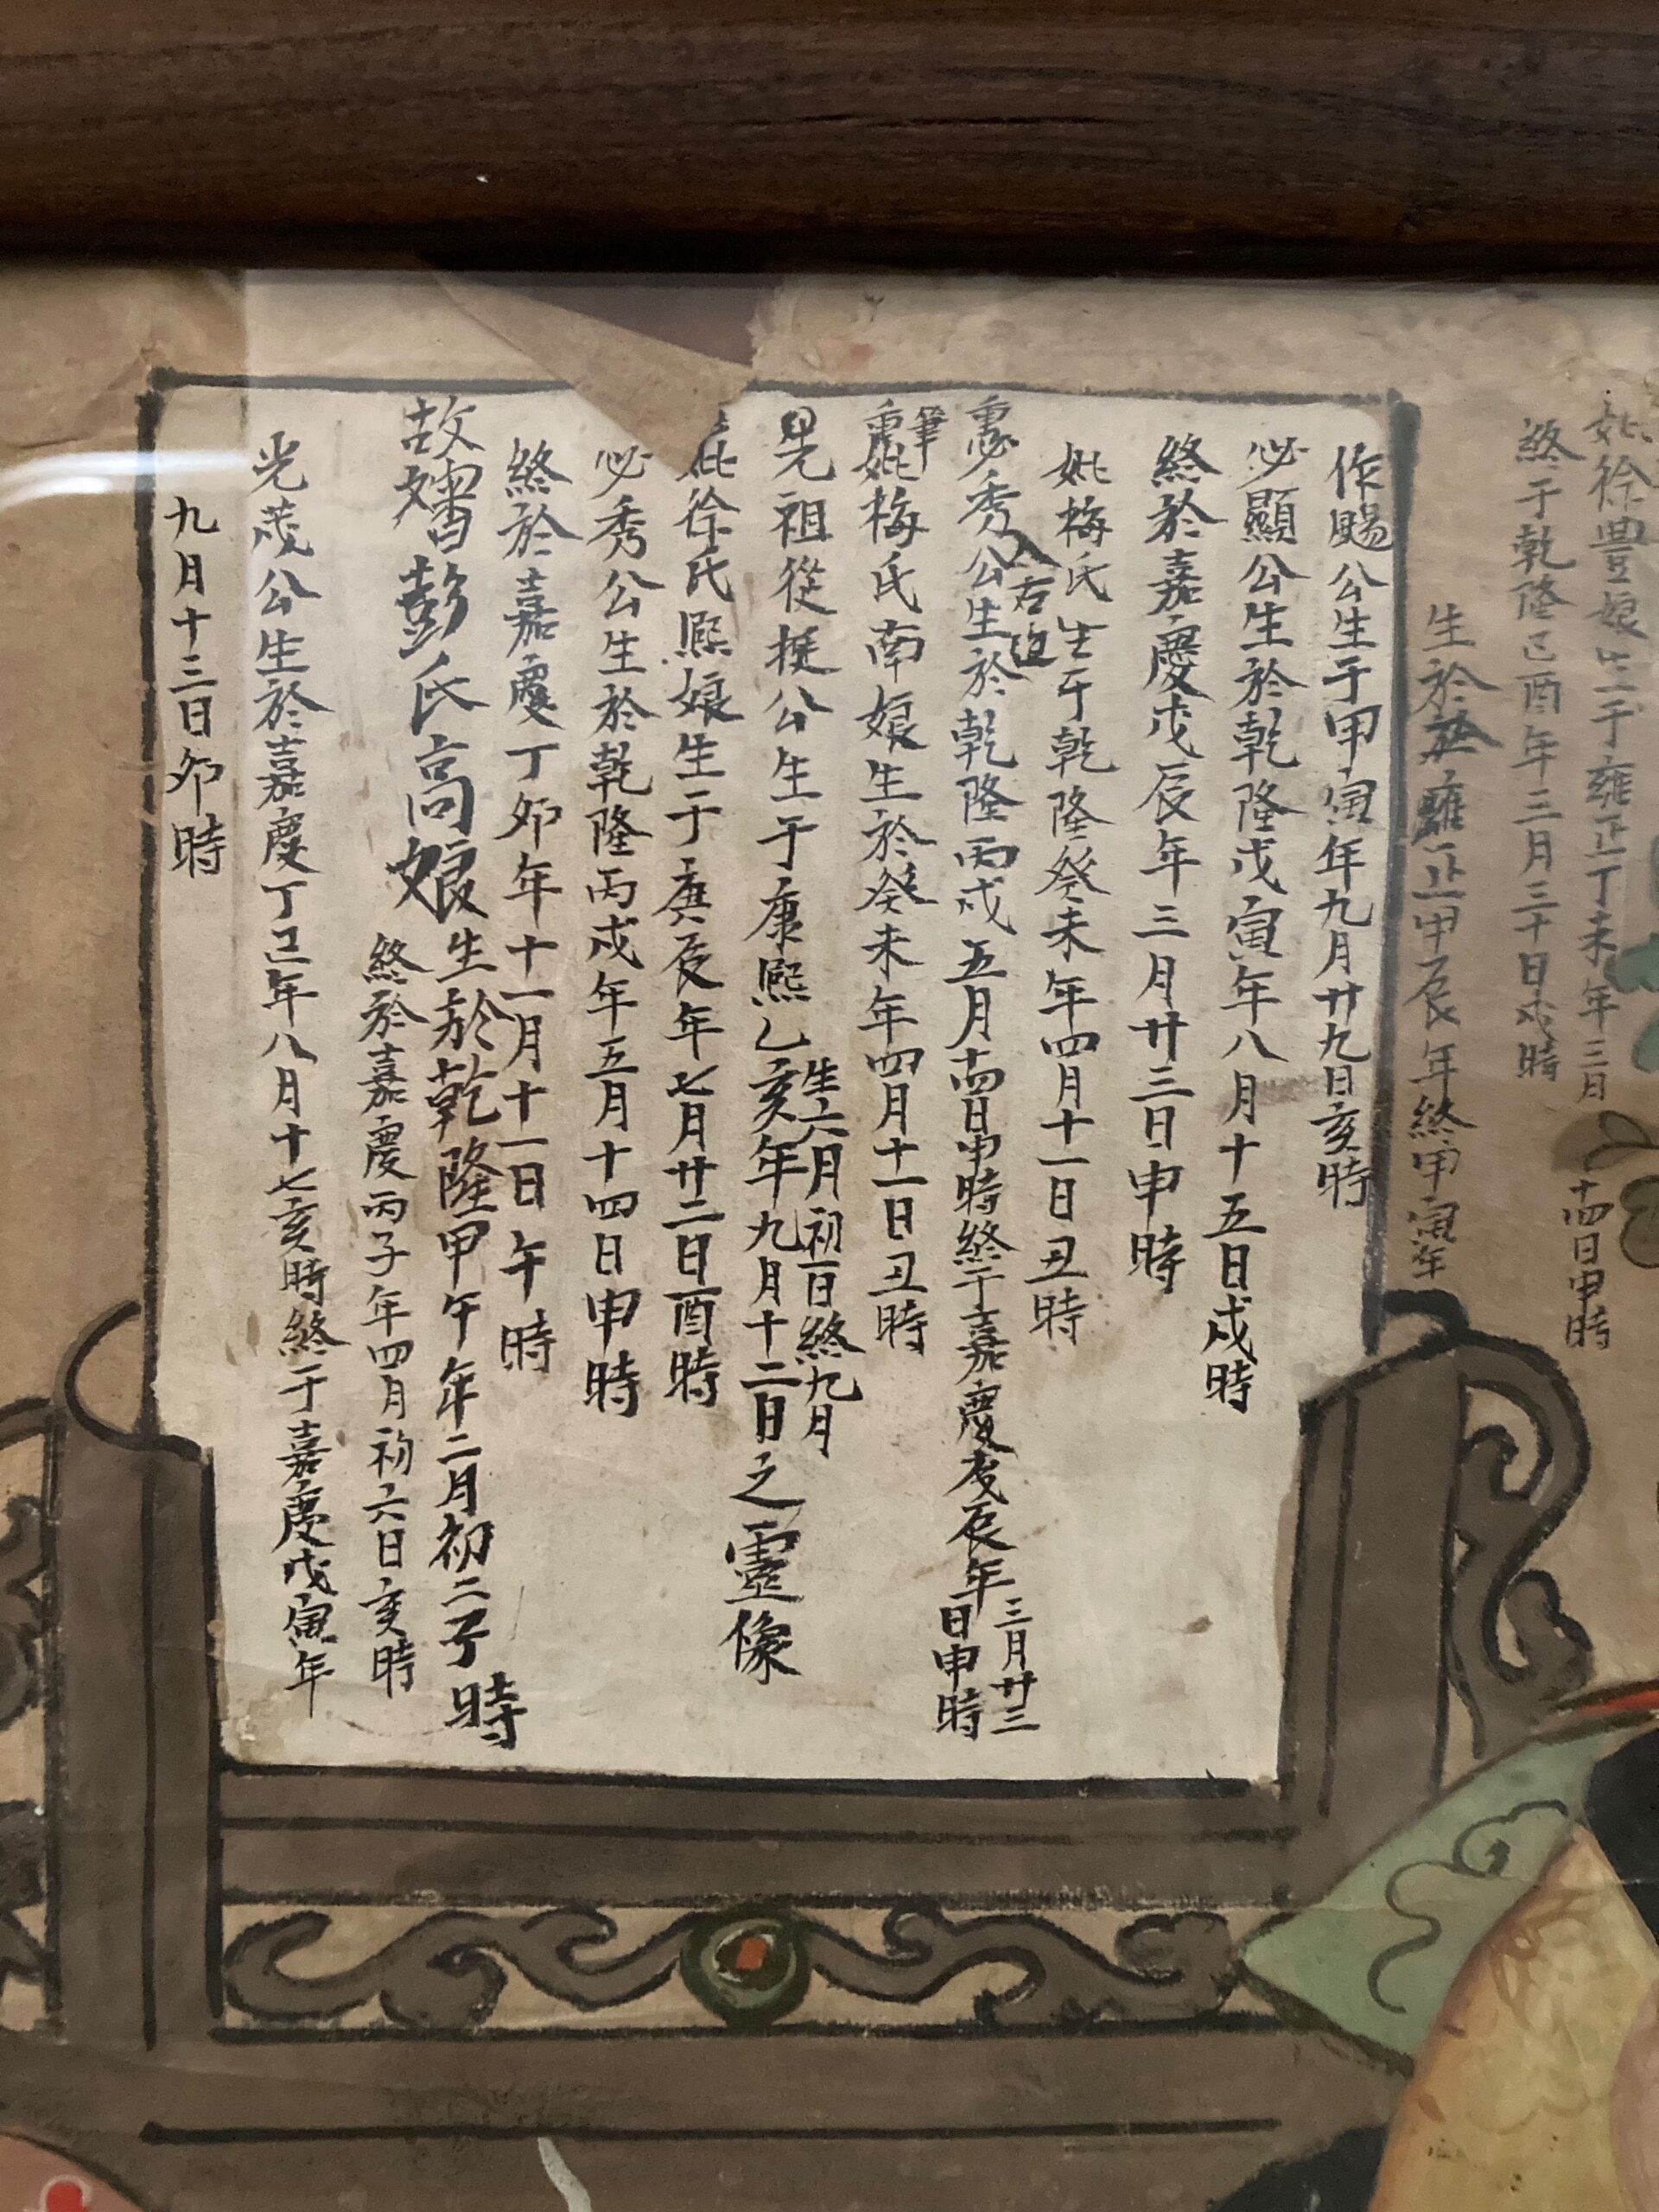 妣徐豊娘生于雍正丁未年三月
十四日申時
終于乾隆己酉年三月三十日戌時
生於雍正甲辰年終甲寅年
作賜公生于甲寅年九月廿九日亥時
必顯公生於乾隆戊寅年八月十五日戌時
終於嘉慶戊辰年三月廿三日申時
妣梅氏生于乾隆癸未年四月十一日丑時
入右邊
重
必秀公生於乾隆丙戌五月十四日申時終于嘉慶戊辰年三月廿三日申時
重筆
妣梅氏南娘生於癸未年四月十一日丑時
生六月初一日終九月
显祖從挺公生于康熙乙亥年九月十二日之靈像
妣徐氏熙娘生于庚辰年七月廿二日酉時
必秀公生於乾隆丙戌年五月十四日申時
終於嘉慶丁卯年十一月十一日午時
故孀彭氏高娘生於乾隆甲午年二月初二子時
終於嘉慶丙子年四月初六日亥時
光茂公生於嘉慶丁巳年八月十七亥時終于嘉慶戊寅年
九月十三日卯時